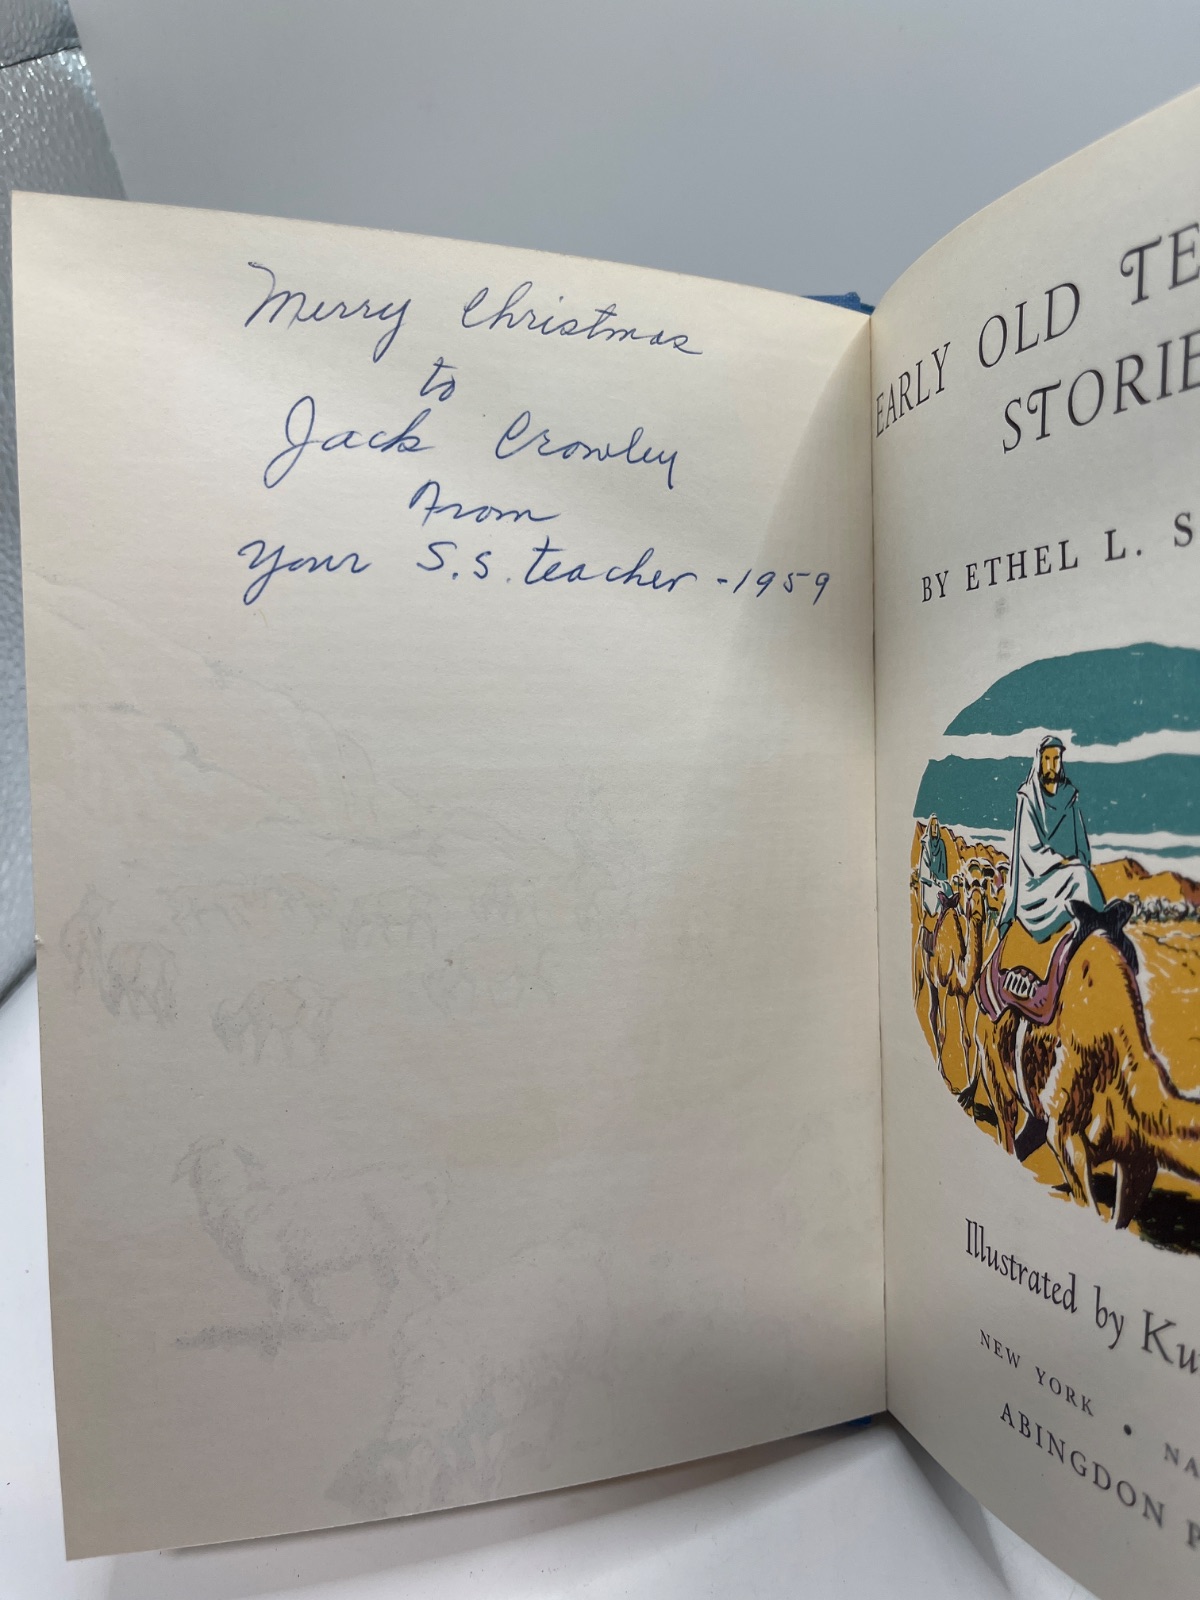 Merry Christmas
to
Jack Crowley
From
Your S.S. teacher - 1959
EARLY OLD TE
STORIE
BY ETHEL L. S
Illustrated by Ku
NEW YORK • NA
ABINGDON P